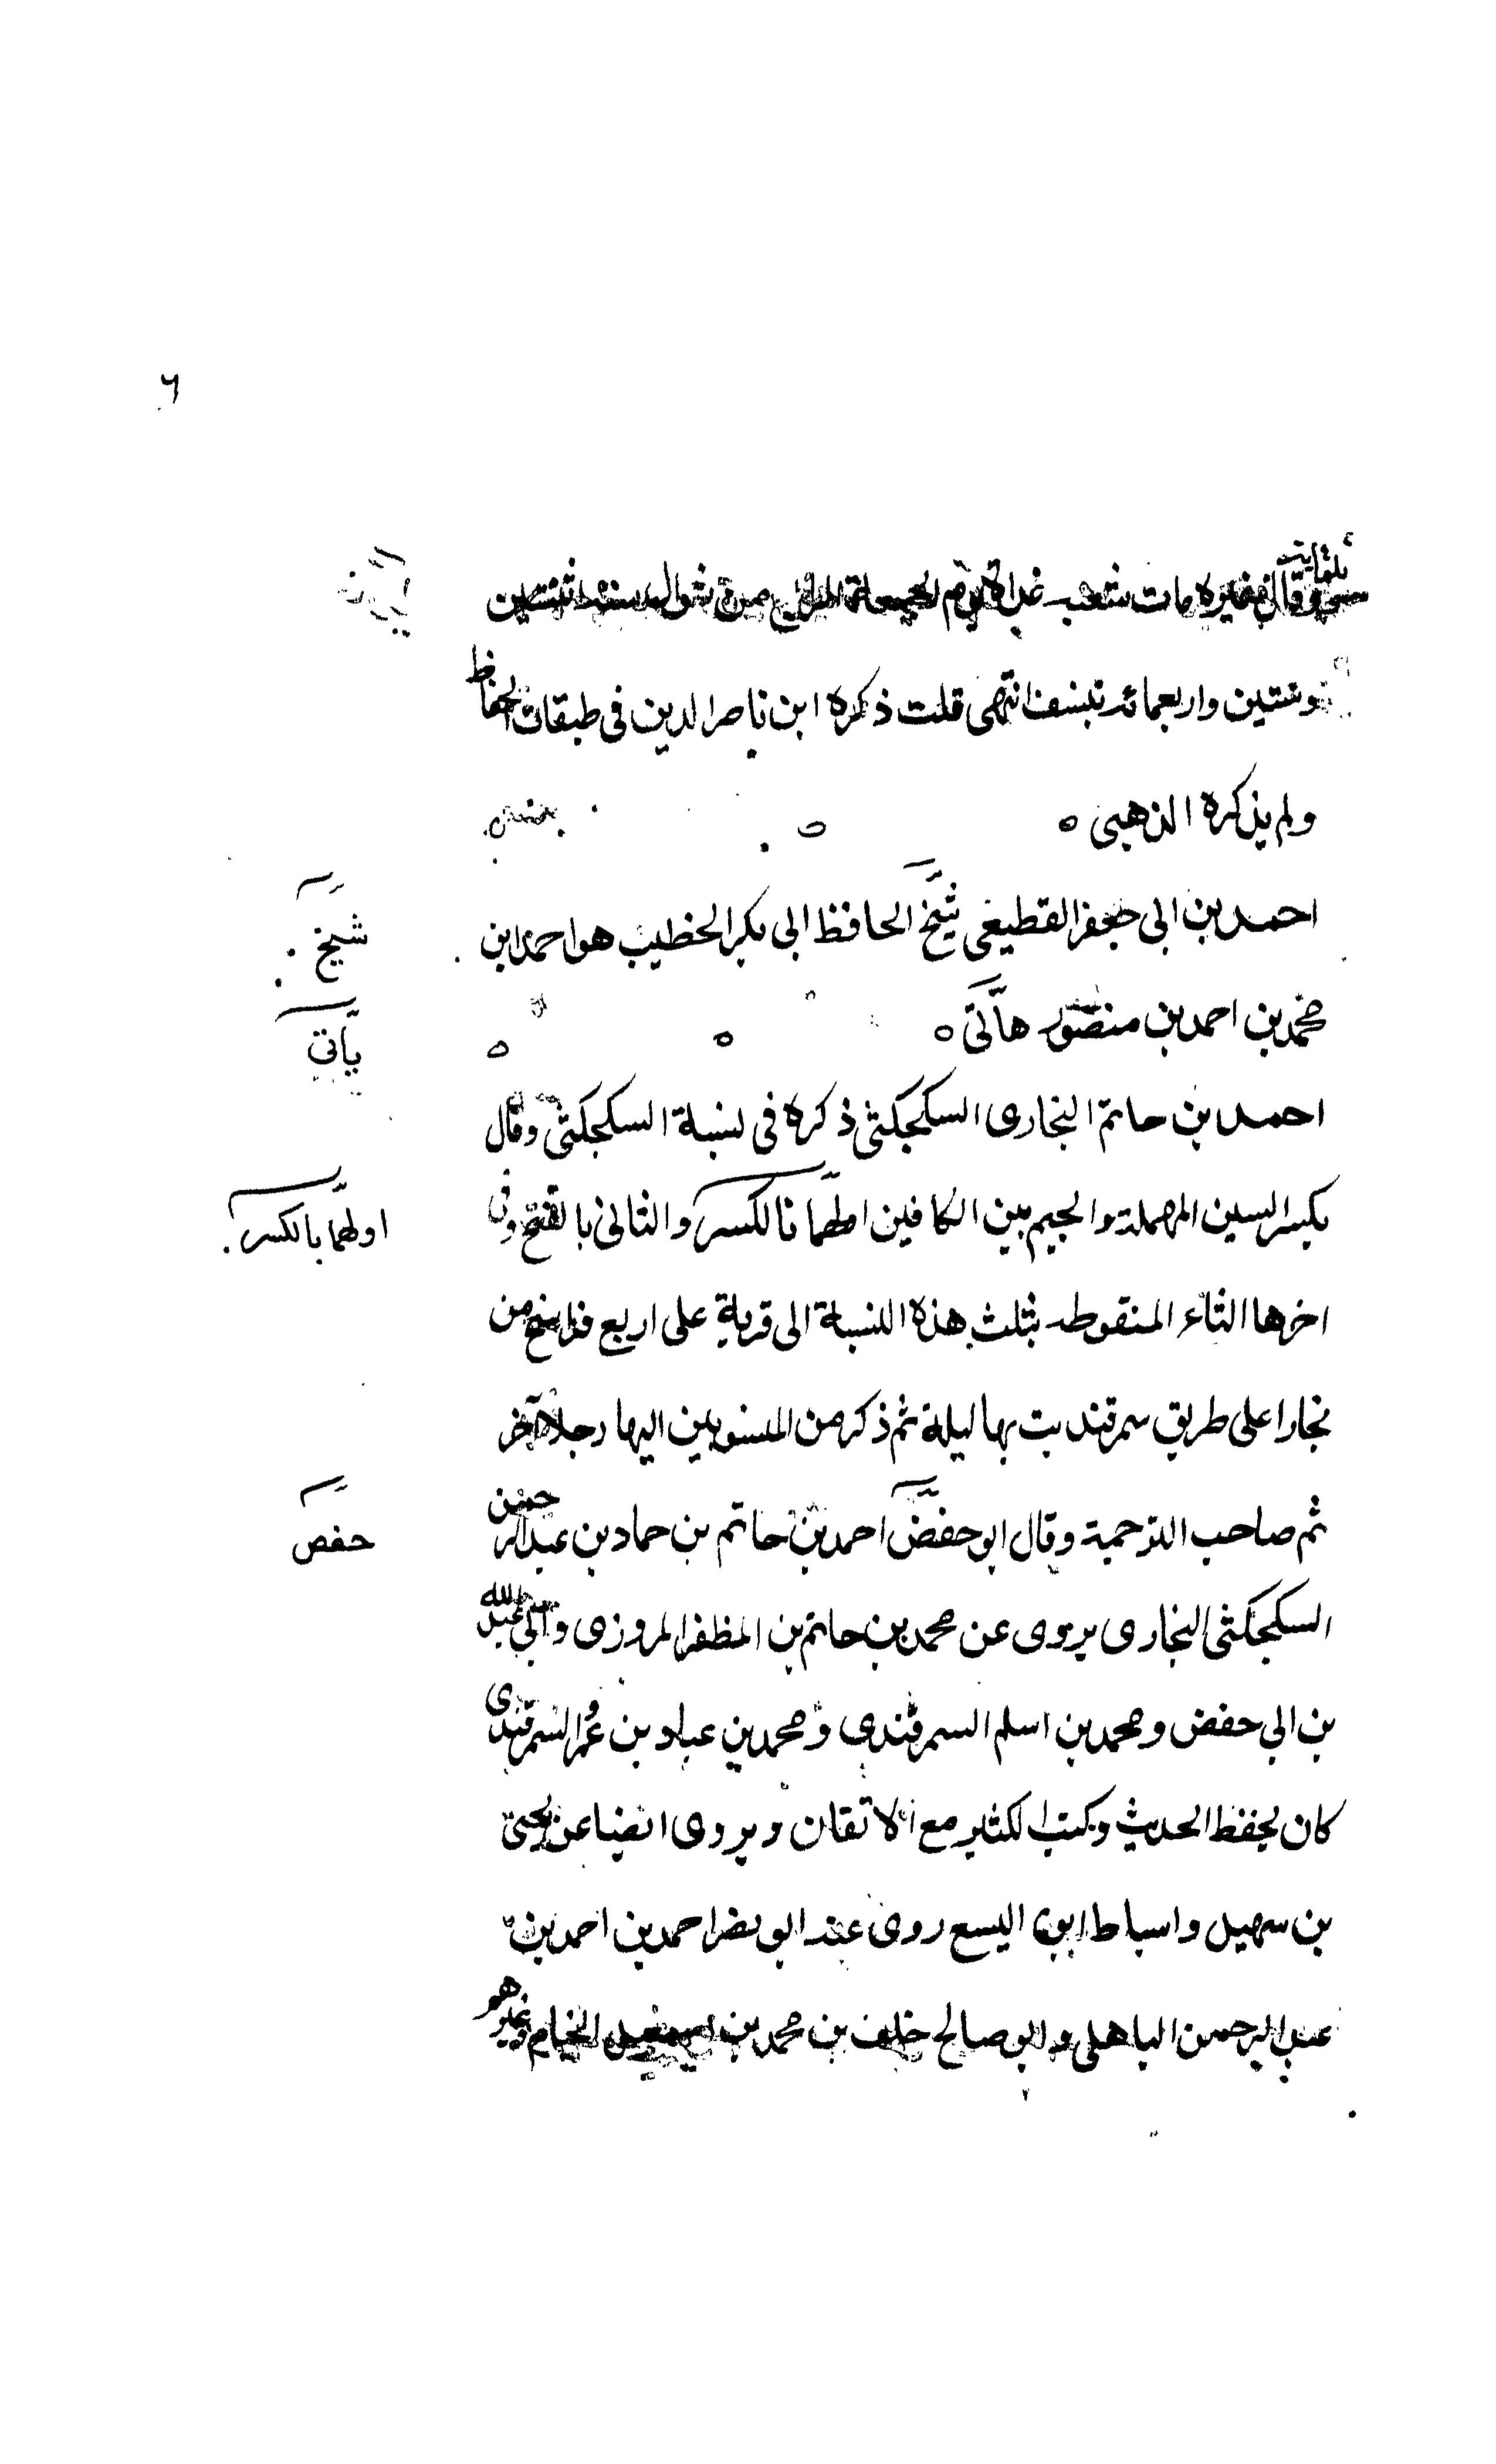 ٦
وقال غيره مات غداة يوم الجمعة الرابع من شوال سنة اثنتين
وستين واربعمائه بنسف انتهى قلت ذكره ابن ناصر الدين فى طبقات الحفاظ
ولم يذكره الذهبى ه
احمد بن ابى جعفر القطيعى شيخ الحافظ ابى بكر الخطيب هو احمد ابن
شيخ
محمد بن احمد بن منصور هاتى ه
ياتى
احمد بن حاتم البخارى السكجكثى ذكره فى نسبة السكجكثى وقال
بكسر السين المهملة والجيم بين الكافين اولهما بالكسر والثانى بالفتح وفى
اولهما بالكسر
اخرها الثاء المنقوطه بثلث هذه النسبة الى قرية على اربع فراسخ من
بخارا على طريق سمرقند بت بها ليلة ثم ذكر من المنسوبين اليها رجلا آخر
ثم صاحب الترجمة وقال ابو حفض احمد بن حاتم بن حماد بن عبد الرحمن
حفص
السكجكثى البخارى يروى عن محمد بن حاتم بن المظفر المروزى وابى عبد الله
بن ابي حفض ومحمد بن اسلم السمرقندى ومحمد بن عباد بن عمر السمرقندى
كان يحفظ الحديث وكتب الكثير مع الاتقان ويروى ايضا عن يحيى
بن سهيل واسباط ابن اليسع روى عنه ابو نصر احمد بن احمد بن
عبد الرحمن الباهلى وابو صالح خلف بن محمد بن اسمعيل الخيام وغيرهو